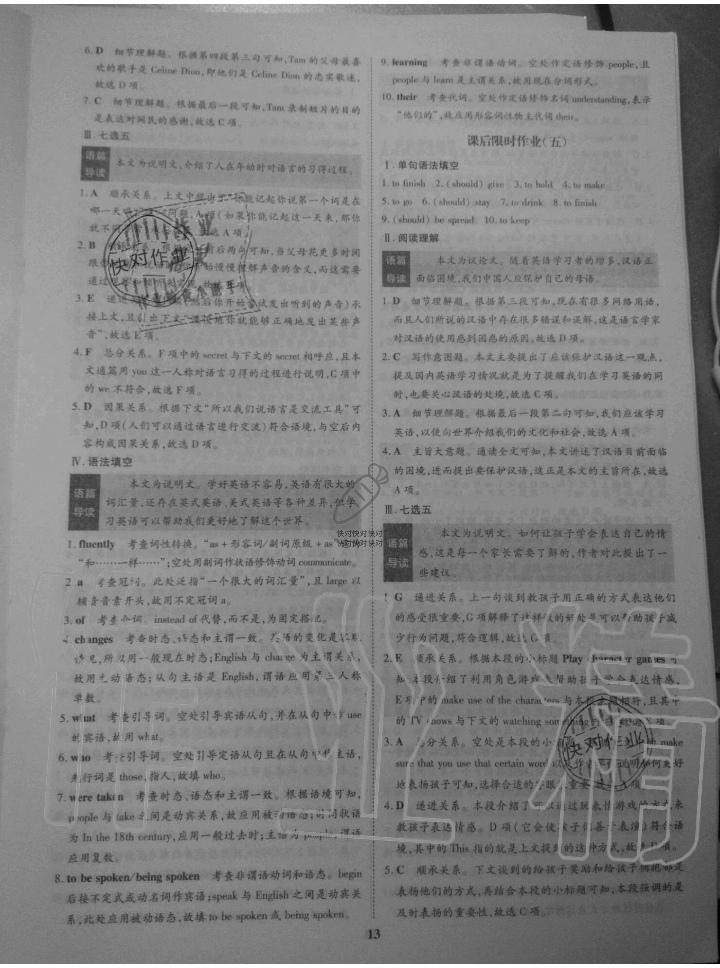 6. D 细节理解题。根据第四段第三句可知,Tam的父母最喜
欢的歌手是Celine Dion,即他们是Celine Dion的忠实歌迷,
故选D项。
7. C 细节理解题。根据最后一段可知,Tam录制短片的目的
是表达对网民的感谢,故选C项。
Ⅲ.七选五
语篇导读
本文为说明文,介绍了人在年幼时对语言的习得过程。
1. A 顺承关系。上文中提出 能记起你说第一个词是在
哪一天 (如果你能记起这一天来,那你
选A项。
2. B 前后两句可知,当父母花更多时间
慢慢理解声音的含义,而这需要
通过
3. E 递进 后你开始尝试发出听到的声音)承
接上文,且引出下文 他你能够正确地发出某些声
音”,故选E项。
4. F 总分关系。F项中的secret与下文的secret相呼应,且本
文通篇用you这一人称对语言习得的过程进行说明,C项中
的we不符合,故选F项。
5. D 因果关系。根据下文“所以我们说语言是交流工具”可
知,D项(人们可以通过语言进行交流)符合语境,与空后内
容构成因果关系,故选D项。
Ⅳ.语法填空
语篇导读
本文为说明文。学好英语不容易,英语有很大的
词汇量,还存在英式英语、美式英语等各种差异,但学
习英语可以帮助我们更好地了解这个世界。
1. fluently 考查词性转换。“as+形容词/副词原级+as”意为
“和……一样……”;空处用副词作状语修饰动词communicate。
2. a 考查冠词。此处泛指“一个很大的词汇量”,且large以
辅音音素开头,故用不定冠词a。
3. of 考查介词。instead of代替,而不是,为固定搭配。
4. changes 考查时态、语态和主谓一致。英语的变化是
情况,所以用一般现在时态;English与change为主动关系,
故用主动语态;从句主语是English,谓语应用第三人称
单数。
5. what 考查引导词。空处引导宾语从句,并在从句中作use
的宾语,故用what。
6. who 考查引导词。空处引导定语从句且在从句中作主语,
先行词是those,指人,故填who。
7. were taken 考查时态、语态和主谓一致。根据语境可知,
people与take之间是动宾关系,故应用被动语态;时间状语
为In the 18th century,应用一般过去时;主语为people,谓语
应用复数。
8. to be spoken/being spoken 考查非谓语动词和语态。begin
后接不定式或动名词作宾语;speak与English之间是动宾关
系,此处应用被动语态,故填to be spoken或being spoken。
9. learning 考查非谓语动词。空处作定语修饰people,且
people与learn是主谓关系,故用现在分词形式。
10. their 考查代词。空处作定语修饰名词understanding,表示
“他们的”,故应用形容词性物主代词their。
课后限时作业(五)
Ⅰ.单句语法填空
1. to finish 2. (should) give 3. to hold 4. to make
5. to go 6. (should) stay 7. to drink 8. to finish
9. (should) be spread 10. to keep
Ⅱ.阅读理解
语篇导读
本文为议论文。随着英语学习者的增多,汉语正
面临困境,我们中国人应保护自己的母语。
1. D 细节理解题。根据第三段可知,现在有很多网络用语,
而且人们所说的汉语中存在很多错误和误解,这是语言学家
对汉语的使用感到困惑的原因。故选D项。
2. C 写作意图题。本文主要提出了应该保护汉语这一观点,
提及国内英语学习情况就是为了提醒我们在学习英语的同
时,也要关心汉语的处境,故选C项。
3. A 细节理解题。根据最后一段第二句可知,我们应该学习
英语,以便向世界介绍我们的文化和社会,故选A项。
4. A 主旨大意题。通读全文可知,本文讲述了汉语目前面临
的困境,进而提出要保护汉语,这正是本文的主旨所在,故选
A项。
Ⅲ.七选五
语篇导读
本文为说明文。如何让孩子学会表达自己的情
感,这是每一个家长需要了解的,作者对此提出了一
些建议。
1. G 递进关系。上一句谈到教孩子用正确的方式表达他们
的感受很重要,G项解释了这样做的好处是可以帮助孩子减
少行为问题,符合逻辑,故选G项。
2. E 顺承关系。根据本段的小标题Play character games可
知,本段介绍了利用角色游戏帮助孩子学会表达情感,
E项中的make use of the characters与本段主题相符,且其中
的TV shows与下文的watching something
3. A 总分关系。空处是本段的小 make
sure that you use that certain word 说明如何更好
地表扬孩子可知,选择合适的
4. D 递进关系。本段介绍了可以通过玩表情游戏的方式来
教孩子表达情感。D项(它会使孩子们善于表演)符合语
境,其中的This指的就是上文提到的这种方式,故选D项。
5. C 顺承关系。下文谈到的给孩子奖励和给孩子拥抱都是
表扬他们的方式,再结合本段的小标题可知,本段强调的是
及时表扬的重要性,故选C项。
13
快对作业
快对作业
快对快对快对快对
快对快对快对快对